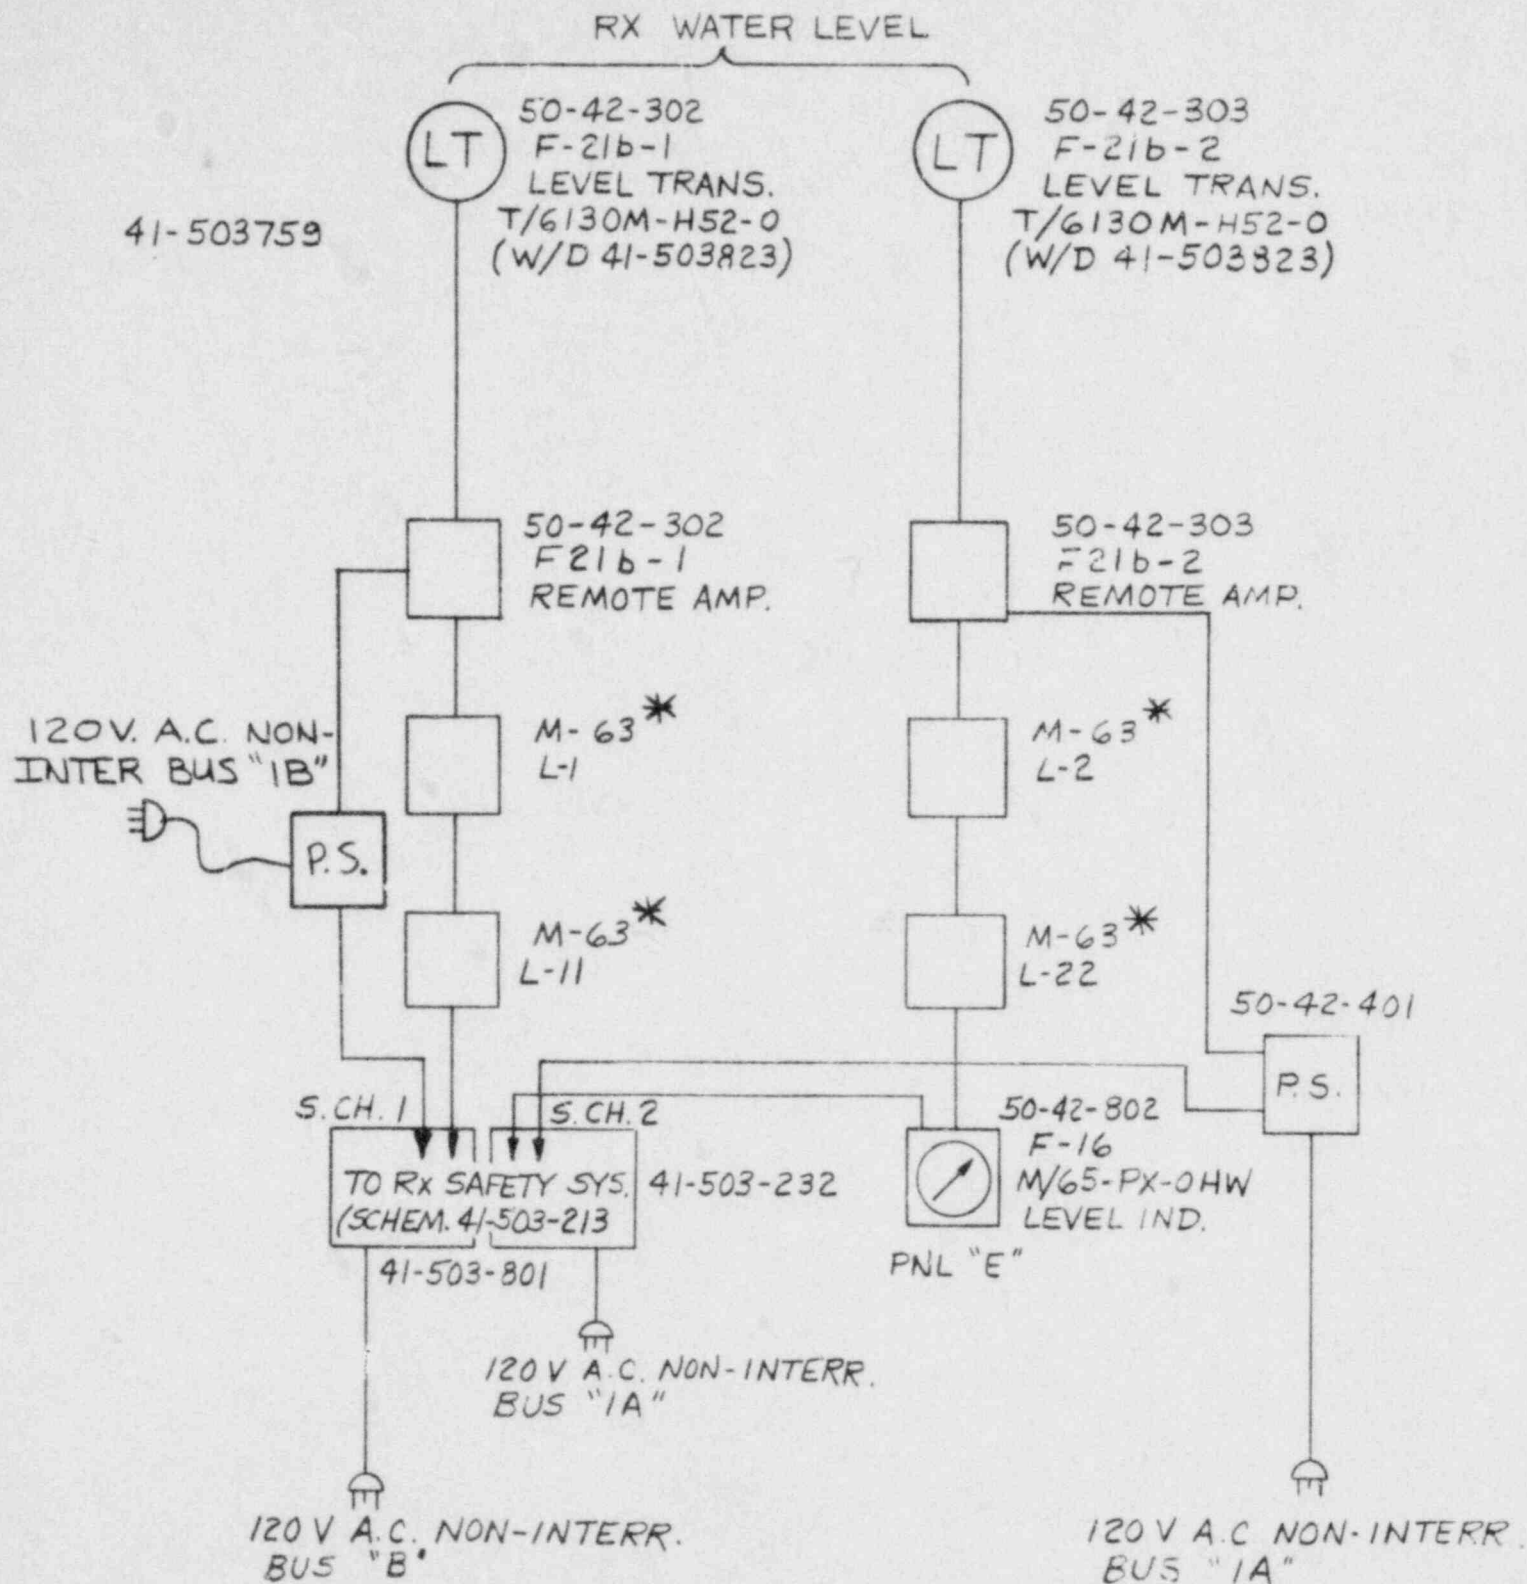 RX WATER LEVEL
LT
50-42-302
F-21b-1
LEVEL TRANS.
T/6130M-H52-0
(W/D 41-503823)
LT
50-42-303
F-21b-2
LEVEL TRANS.
T/6130M-H52-0
(W/D 41-503823)
41-503759
50-42-302
F21b-1
REMOTE AMP.
50-42-303
F21b-2
REMOTE AMP.
120V. A.C. NON-
INTER BUS "1B"
P.S.
M-63*
L-1
M-63*
L-2
M-63*
L-11
M-63*
L-22
50-42-401
P.S.
S.CH. 1
S.CH. 2
TO Rx SAFETY SYS.
(SCHEM. 41-503-213
41-503-232
41-503-801
50-42-802
F-16
M/65-PX-OHW
LEVEL IND.
PNL "E"
120 V A.C. NON-INTERR.
BUS "1A"
120 V A.C. NON-INTERR.
BUS "B"
120 V A.C NON-INTERR.
BUS "1A"